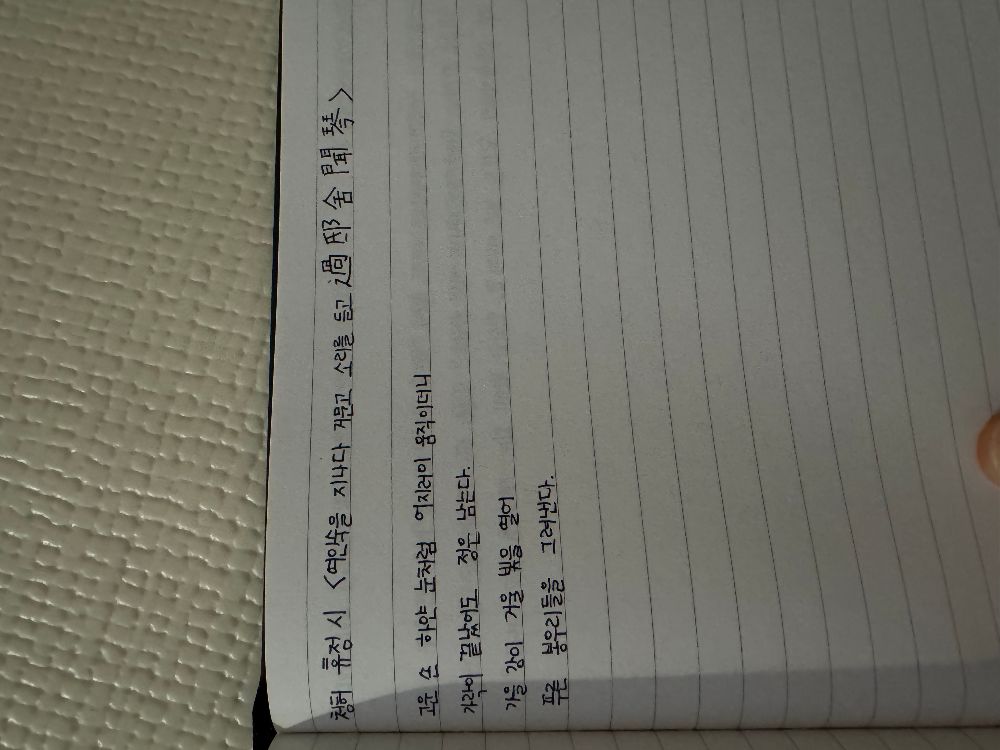 청허 휴정 시 <여인숙을 지나다 거문고 소리를 듣고 過邸舍聞琴>
고운 손 하얀 눈처럼 어지러이 움직이더니
가락이 끝났어도 정은 남는다.
가을 강이 거울 빛을 열어
푸른 봉우리들을 그려낸다.